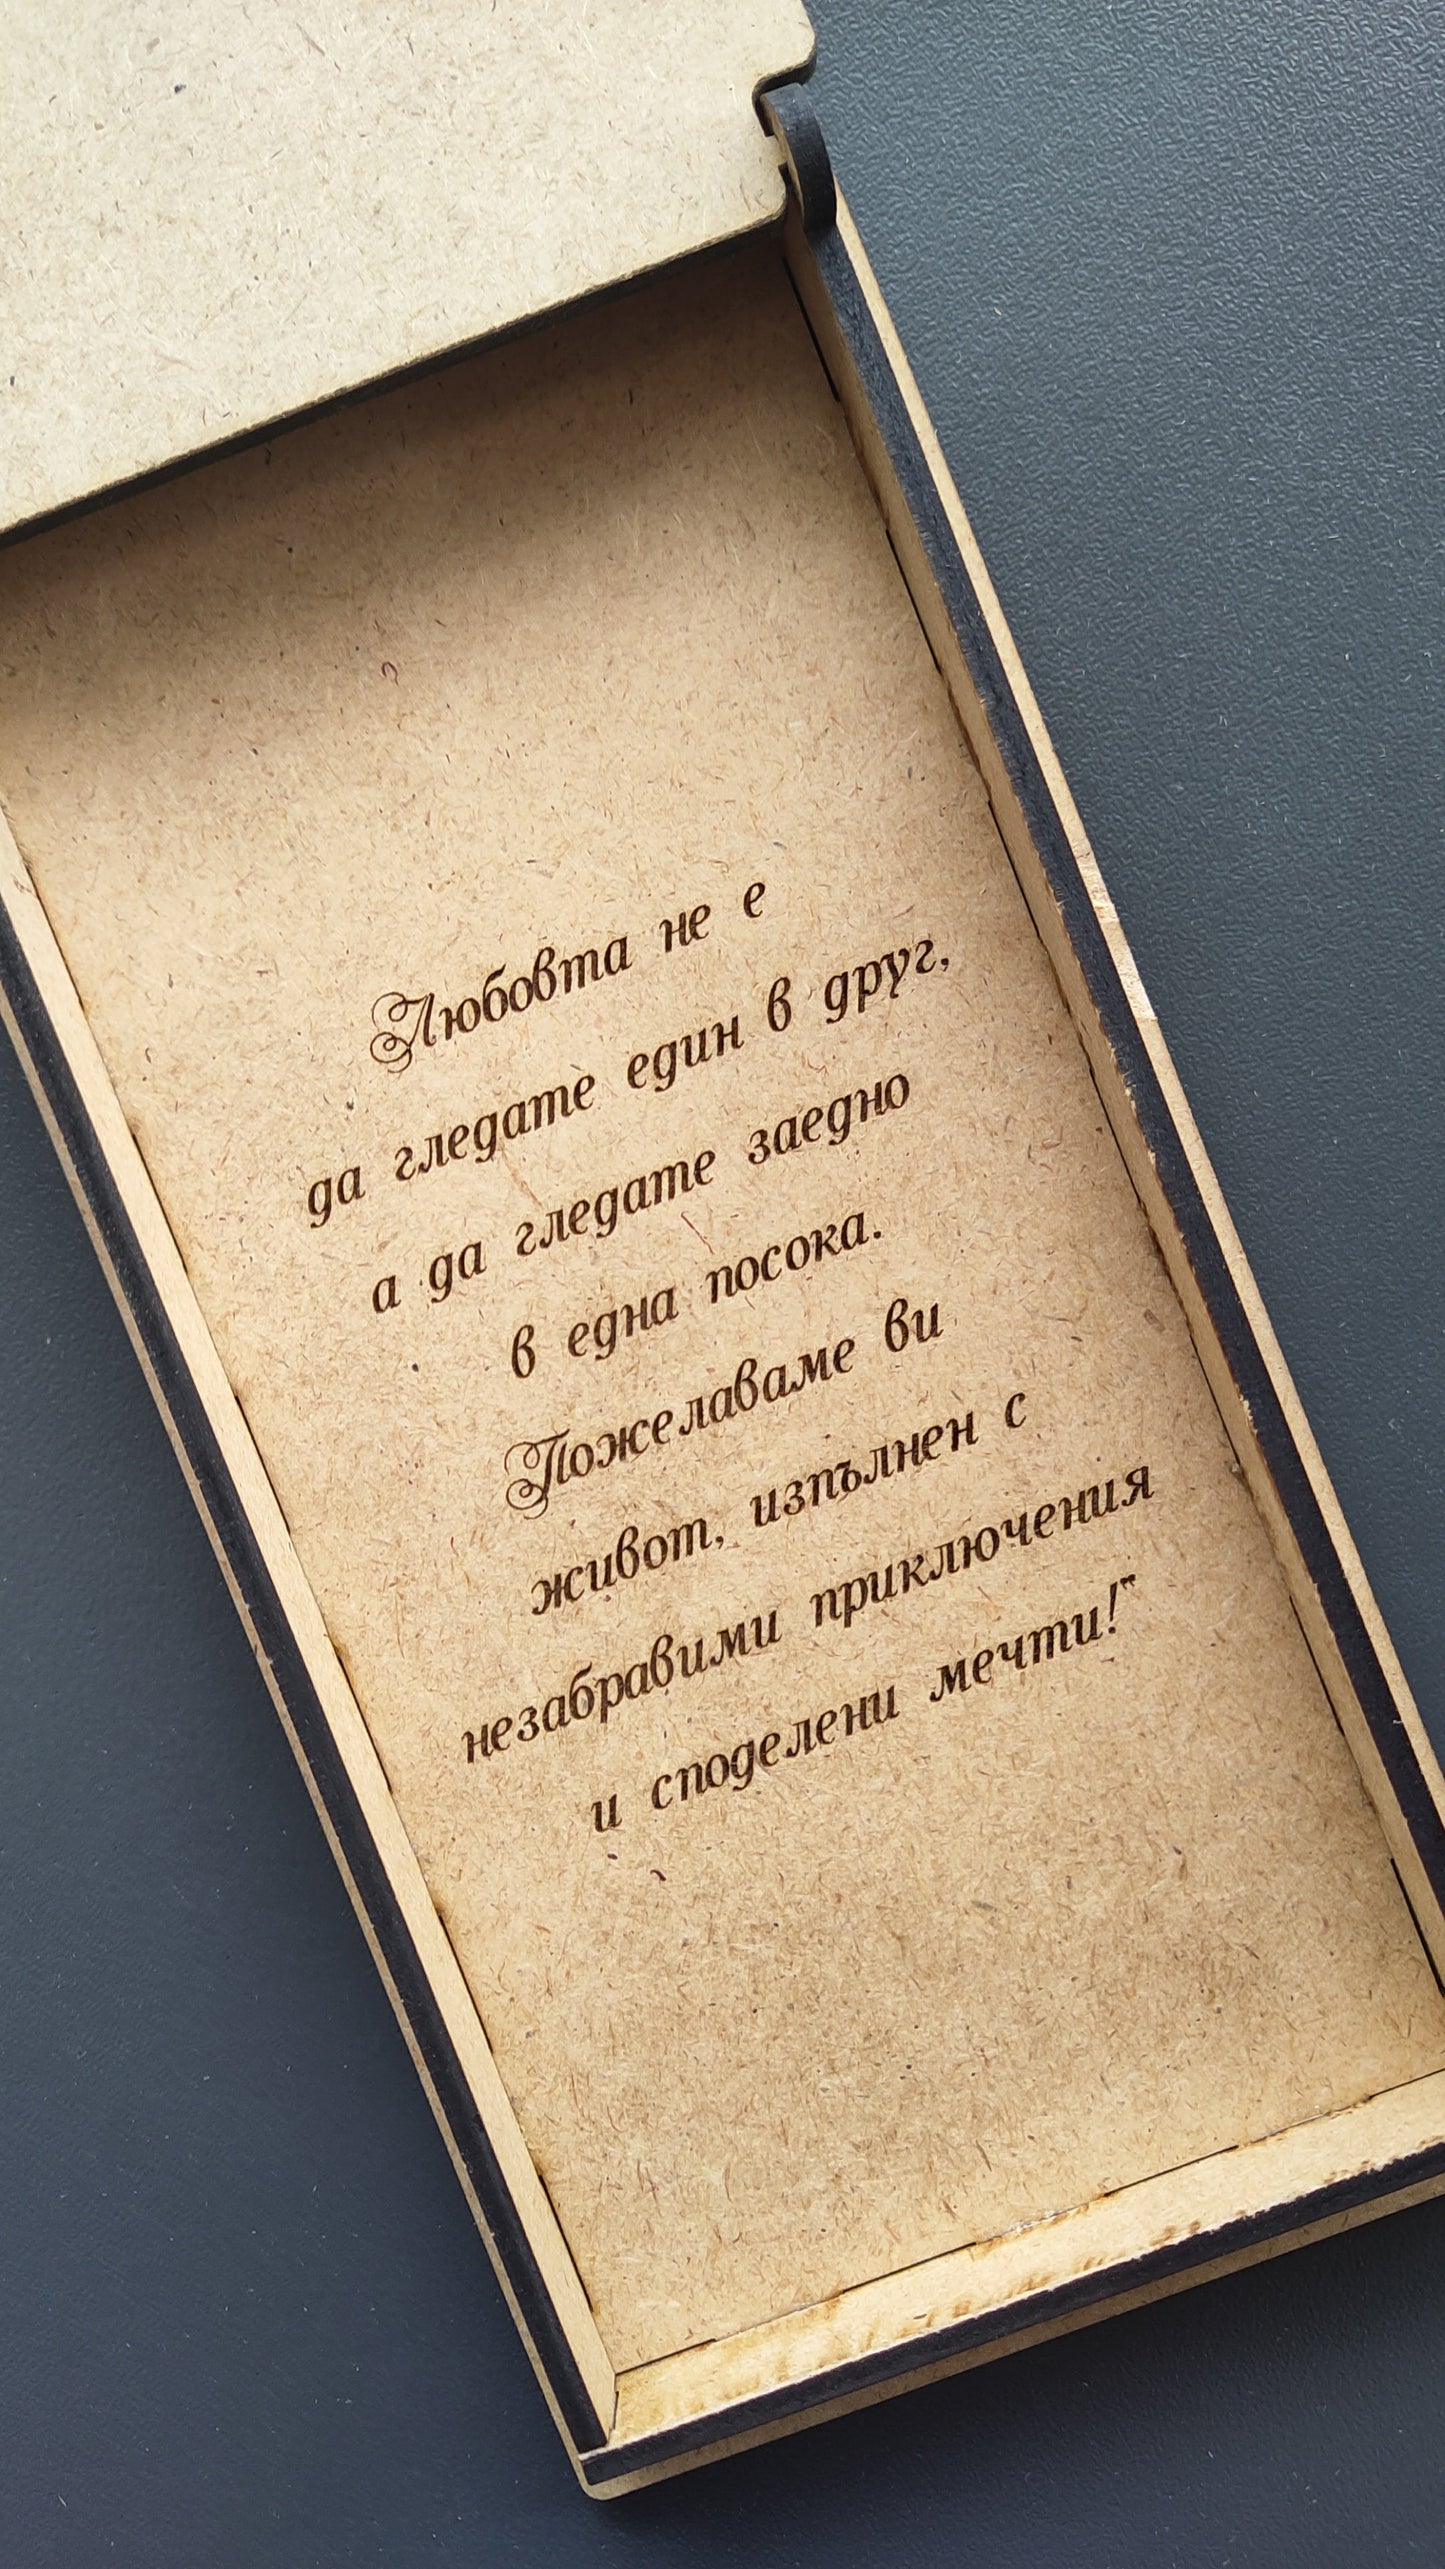 Любовта не е
да гледате един в друг,
а да гледате заедно
в една посока.
Пожелаваме ви
живот, изпълнен с
незабравими приключения
и споделени мечти!“